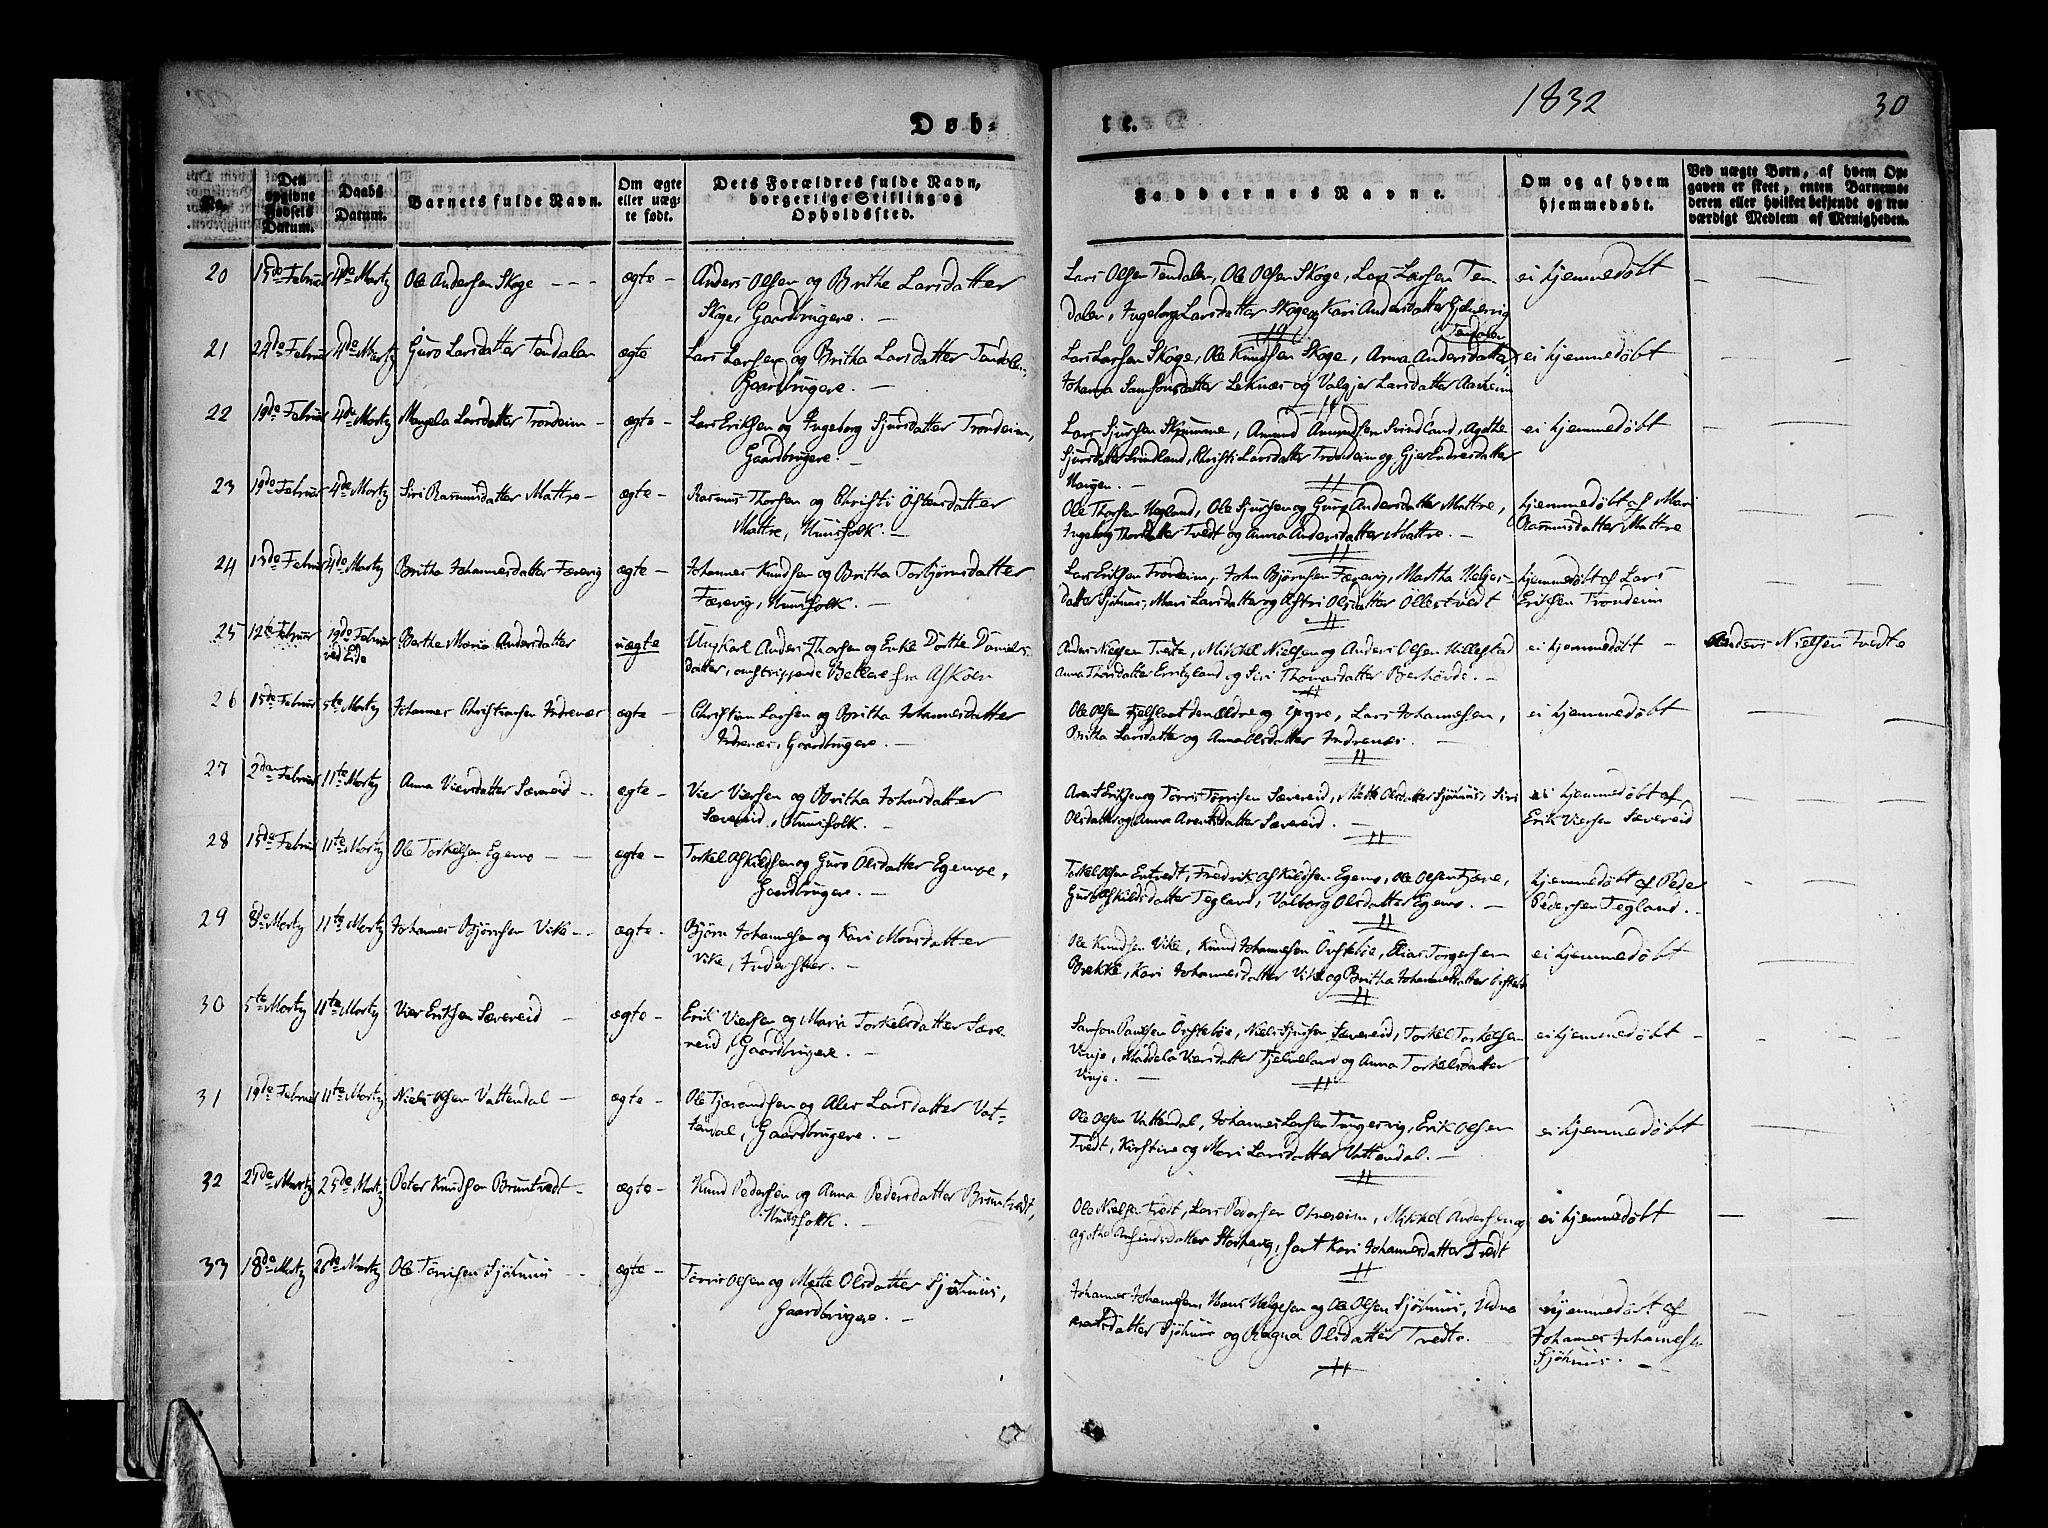 1832
30
Døb-
te.
No.
Den opgivne Fødsels Datum.
Daabs Datum.
Barnets fulde Navn.
Om ægte eller uægte født.
Dets Forældres fulde Navn, borgerlige Stilling og Opholdssted.
Faddernes Navne.
Om og af hvem hjemmedøbt.
Ved uægte Børn, af hvem Opgaven er skeet, enten Barnemoderen eller hvilket bekjendt og troværdigt Medlem af Menigheden.
20 Februar 4de Martz Ole Andersen Skoge - - - ægte - Anders Olsen og Brithe Larsdatter
Skoge, Gaardbrugere. -
Lars Olsen Tendalen, Ole Olsen Skoge, Lars Larsen Ten
dalen, Ingeborg Larsdatter Skoge og Kari Andersdatter
ei hjemmedøbt
21 24de Februar 4de Martz Guro Larsdatter Tendalen ægte Lars Larsen og Britha Larsdatter Tendalen,
Gaardbrugere. -
Tendalen
Lars Larsen Skoge, Ole Knudsen Skoge, Anna Andersdatter
Johanna Samsonsdatter Leknæs og Valgjer Larsdatter Aarheim
ei hjemmedøbt
22 19de Februar 4de Martz Larsdatter Trondeim - ægte - Lars Eriksen og Ingeborg Sjursdatter Trondeim,
Gaardbrugere. -
Lars Sjursen Skjumme, Amund Amundsen Svindland, Agathe
Sjursdatter Svindland, Christi Larsdatter Trondeim og Endresdatter
Haugen. -
ei hjemmedøbt
23 19de Februar 4de Martz Siri Rasmusdatter Mattre - ægte - Rasmus Thorsen og Christi Östensdatter
Mattre, Huusfolk. -
Ole Thorsen Hegland, Ole Sjursen og Guro Andersdatter Mattre,
Ingeborg Thorsdatter Tvedt og Anna Andersdatter Mattre. -
hjemmedøbt af Mari
Rasmusdatter Mattre
24 Februar 4de Martz Britha Johannesdatter Færevig ægte - Johannes Knudsen og Britha Torbjørnsdatter
Færevig, Huusfolk. -
Lars Eriksen Trondeim, John Bjørnsen Færevig, Martha Helges-
datter Sjøhuus, Mari Larsdatter og Astri Olsdatter Öllestvedt
hjemmedøbt af Lars
Eriksen Trondeim
25 12te Februar 19de Februar
ved Eide
Berthe Maria Andersdatter uægte Ungkarl Anders Thorsen og Enke Dorthe Daniels
datter, omstrippende Betlere fra Askøen
Anders Nielsen Tvedte, Mikkel Nielsen og Anders Olsen Hillestad
Anna Thorsdatter og Siri Thomasdatter Berhövde. -
ei hjemmedøbt - Anders Nielsen Tvedte
26 15de Februar 5te Martz Johannes Christiansen Indrenæs ægte - Christian Larsen og Britha Johannesdatter
Indrenæs, Gaardbrugere. -
Ole Olsen den ældre og yngre, Lars Johannesen,
Britha Larsdatter og Anna Olsdatter Indrenæs. -
ei hjemmedøbt
27 2den Februar 11te Martz Anna Viersdatter Sævereid - ægte - Vier Viersen og Britha Johnsdatter
Sævereid, Huusfolk. -
Arent Eriksen og Torris Torrisen Sævereid, Mette Olsdatter Sjöhuus, Siri
Olsdatter og Anna Arentsdatter Sævereid. -
ei hjemmedøbt af
Erik Viersen Sævereid
28 15de Februar 11te Martz Ole Torkelsen Egemo - - ægte - Torkel Askildsen og Guro Olsdatter Egemoe,
Gaardbrugere. -
Torkel Olsen Entvedt, Fredrik Askildsen Egemo, Ole Olsen
Guro Askildsdatter Tegland, Valborg Olsdatter Egemo. -
hjemmedøbt af Peder
Pedersen Tegland. -
29 8de Martz 11te Martz Johannes Bjørnsen Vike - - ægte - Bjørn Johannesen og Kari Monsdatter
Vike, Inderster. -
Ole Knudsen Vike, Knud Johannesen Övstebøe, Elias Torgersen
Brekke, Kari Johannesdatter Vike og Britha Johannesdatter
ei hjemmedøbt
30 5te Martz 11te Martz Vier Eriksen Sævereid - ægte - Erik Viersen og Maria Torkelsdatter Sæve
reid, Gaardbrugere. -
Samson Paulsen Övstebøe, Niels Sjursen Sævereid, Torkel Torkelsen
Vinje, Maddela Viersdatter Fjelneland og Anna Torkelsdatter
Vinje. -
ei hjemmedøbt -
31 19de Februar 11te Martz Niels Olsen Vattendal - ægte - Ole og Ales Larsdatter Vat-
tendal, Gaardbrugere. -
Ole Olsen Vattendal, Johannes Larsen Tungesvig, Erik Olsen
Tvedt, Kirstine og Mari Larsdatter Vattendal. -
ei hjemmedøbt
32 Martz 25de Martz Peter Knudsen Bruntvedt - ægte - Knud Pedersen og Anna Pedersdatter Bruntvedt,
Huusfolk. -
Ole Nielsen Tvedt, Lars Pedersen Otnereim, Mikkel Andersen og
Agathe Anfindsdatter Storhaug, samt Kari Johannesdatter Tvedt
ei hjemmedøbt
33 18de Martz Martz Ole Torrisen Sjöhuus - - ægte - Torris Olsen og Mette Olsdatter Sjöhuus,
Gaardbrugere. -
Johannes Johannesen, Hans Helgesen og Ole Olsen Sjöhuus,
Sjöhuus og Ragna Olsdatter Tvedte. -
hjemmedøbt af
Johannes Johannesen
Sjöhuus. -